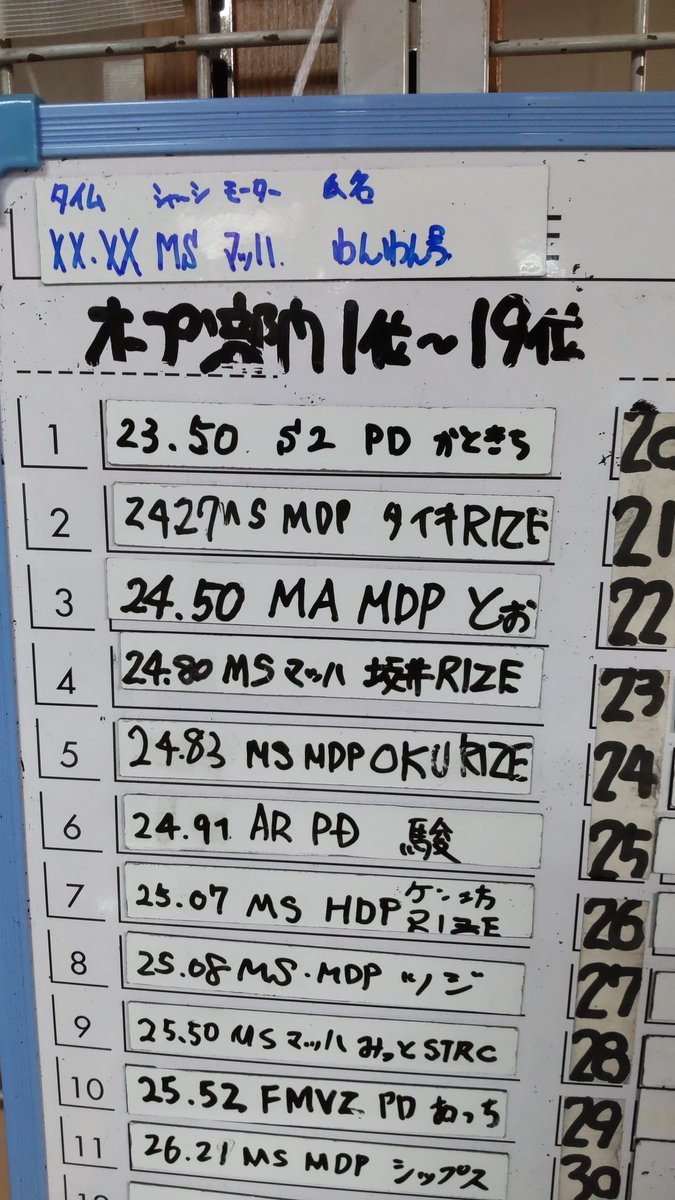 タイム シャーシ モーター 氏名
XX.XX MS マッハ. わんわん号
オープン部門 1位〜19位
1 23.50 S2 PD かときち
2 2427 MS MDP タイキRIZE
3 24.50 MA MDP とお
4 24.80 MS マッハ 坂井RIZE
5 24.83 MS MDP OKU RIZE
6 24.91 AR PD 駿
7 25.07 MS HDP ケン坊
RIZE
8 25.08 MS・MDP ツジ
9 25.50 MS マッハ みっとSTRC
10 25.52 FMVZ PD あっち
11 26.21 MS MDP シップス
20
21
22
23
24
25
26
27
28
29
30